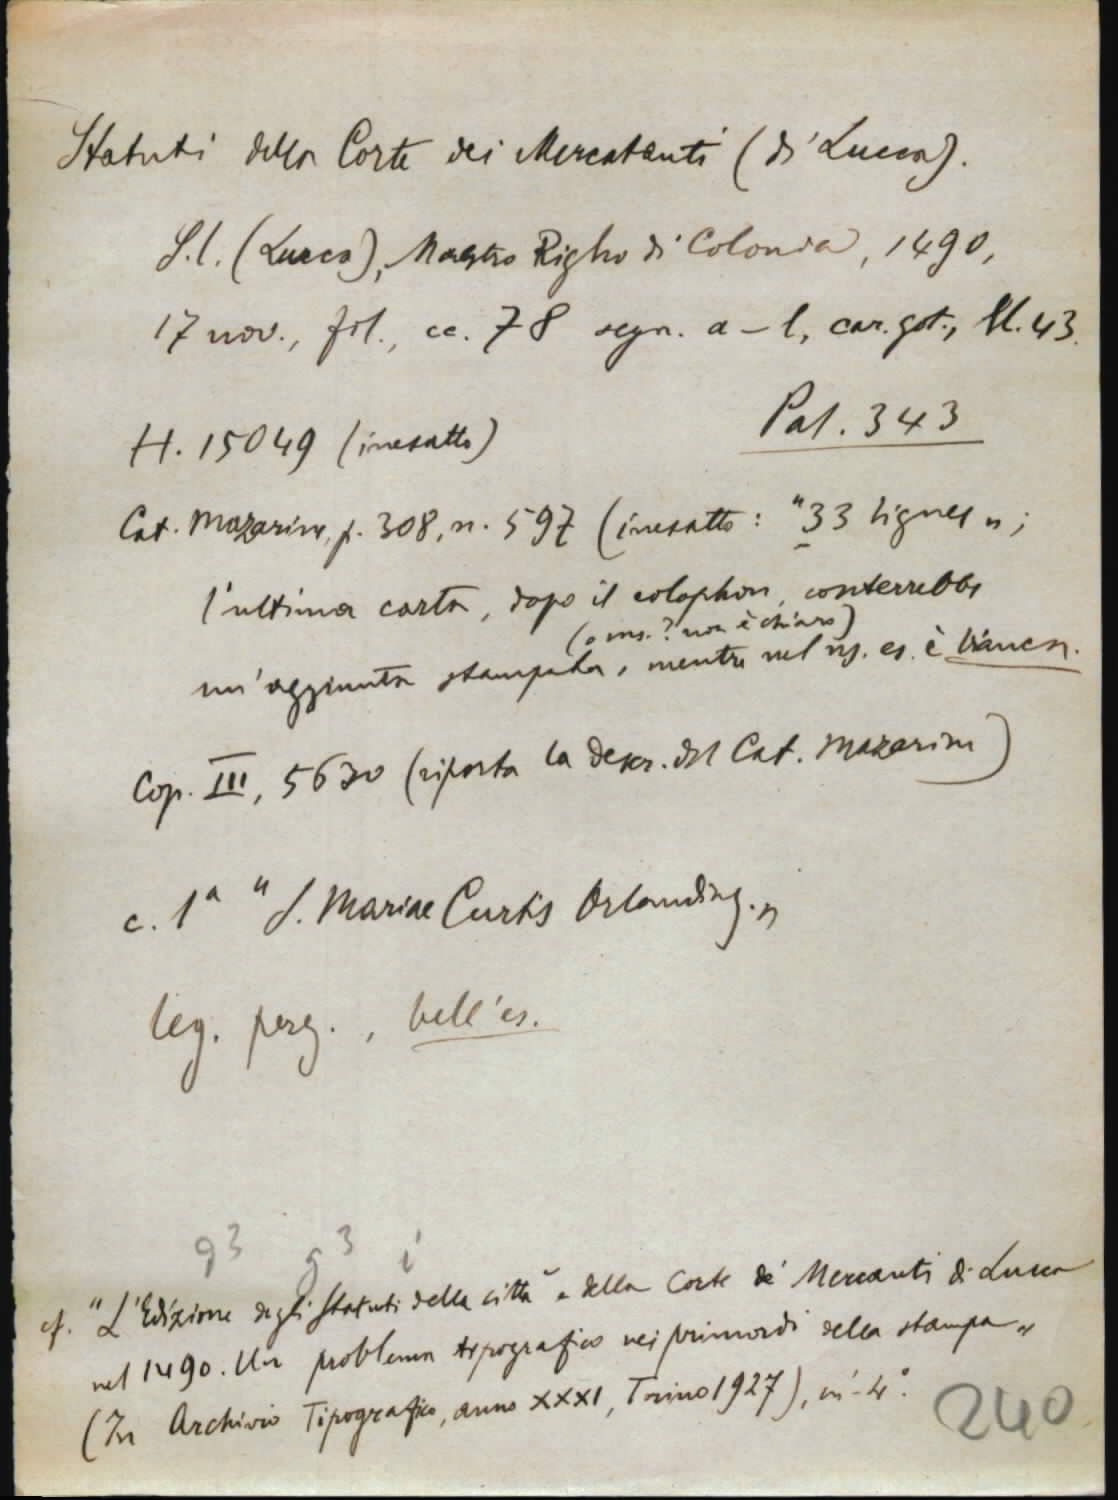 Statuti della Corte dei Mercatanti (di Lucca).
S.l. (Lucca), Maestro Righo di Colonia, 1490,
17 nov., fol., cc. 78 segn. a-l, car. got., ll. 43.
Pal. 343
H. 15049 (inesatto)
Cat. Mazarine, p. 308, n. 597 (inesatto: "33 lignes";
l'ultima carta, dopo il colophon, conterrebbe
(o ms.? non è chiaro)
un'aggiunta stampata, mentre nel ns. es. è bianca.
Cop. III, 5630 (riporta la descr. del Cat. Mazarine)
c. 1a "S. Mariae Curtis Orlanding."
leg. perg., bell'es.
g3 g3 i
cf. "L'Edizione degli Statuti della città e della Corte de' Mercanti di Lucca
nel 1490. Un problema tipografico nei primordi della stampa"
(In Archivio Tipografico, anno XXXI, Torino 1927), in-4°.
240